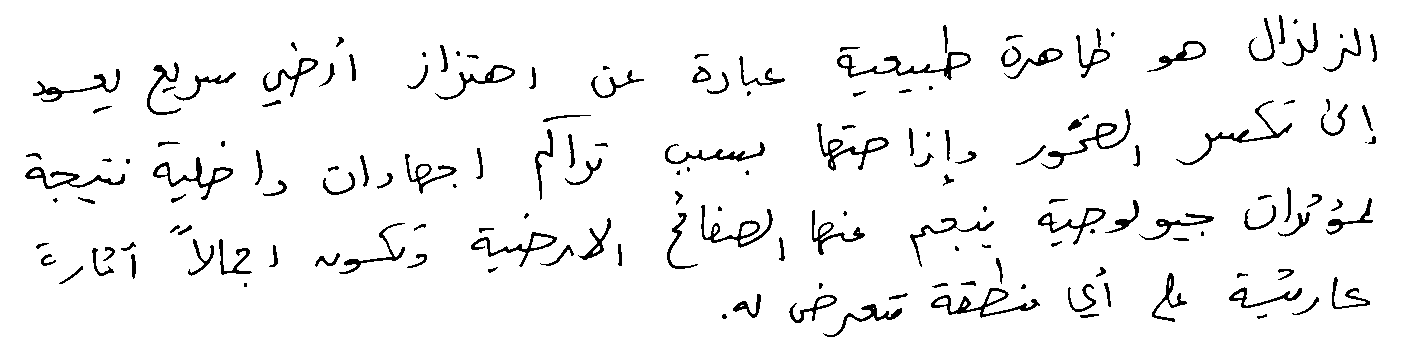 الزلزال هو ظاهرة طبيعية عبارة عن اهتزاز أرضي سريع يعود
إلى تكسر الصخور وإزاحتها بسبب تراكم اجهادات داخلية نتيجة
لمؤثرات جيولوجية ينجم عنها الصفائح الارضية وتكون اجمالاً آثاره
كارثية على أي منطقة تتعرض له.